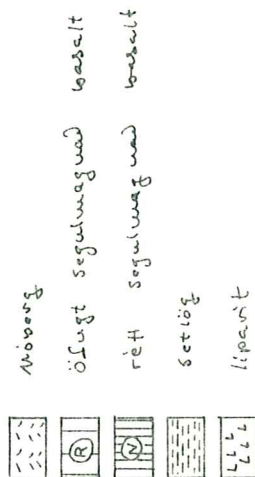 Móberg
öfugt segulmagnað basalt
R
rétt segulmagnað basalt
N
setlög
líparít